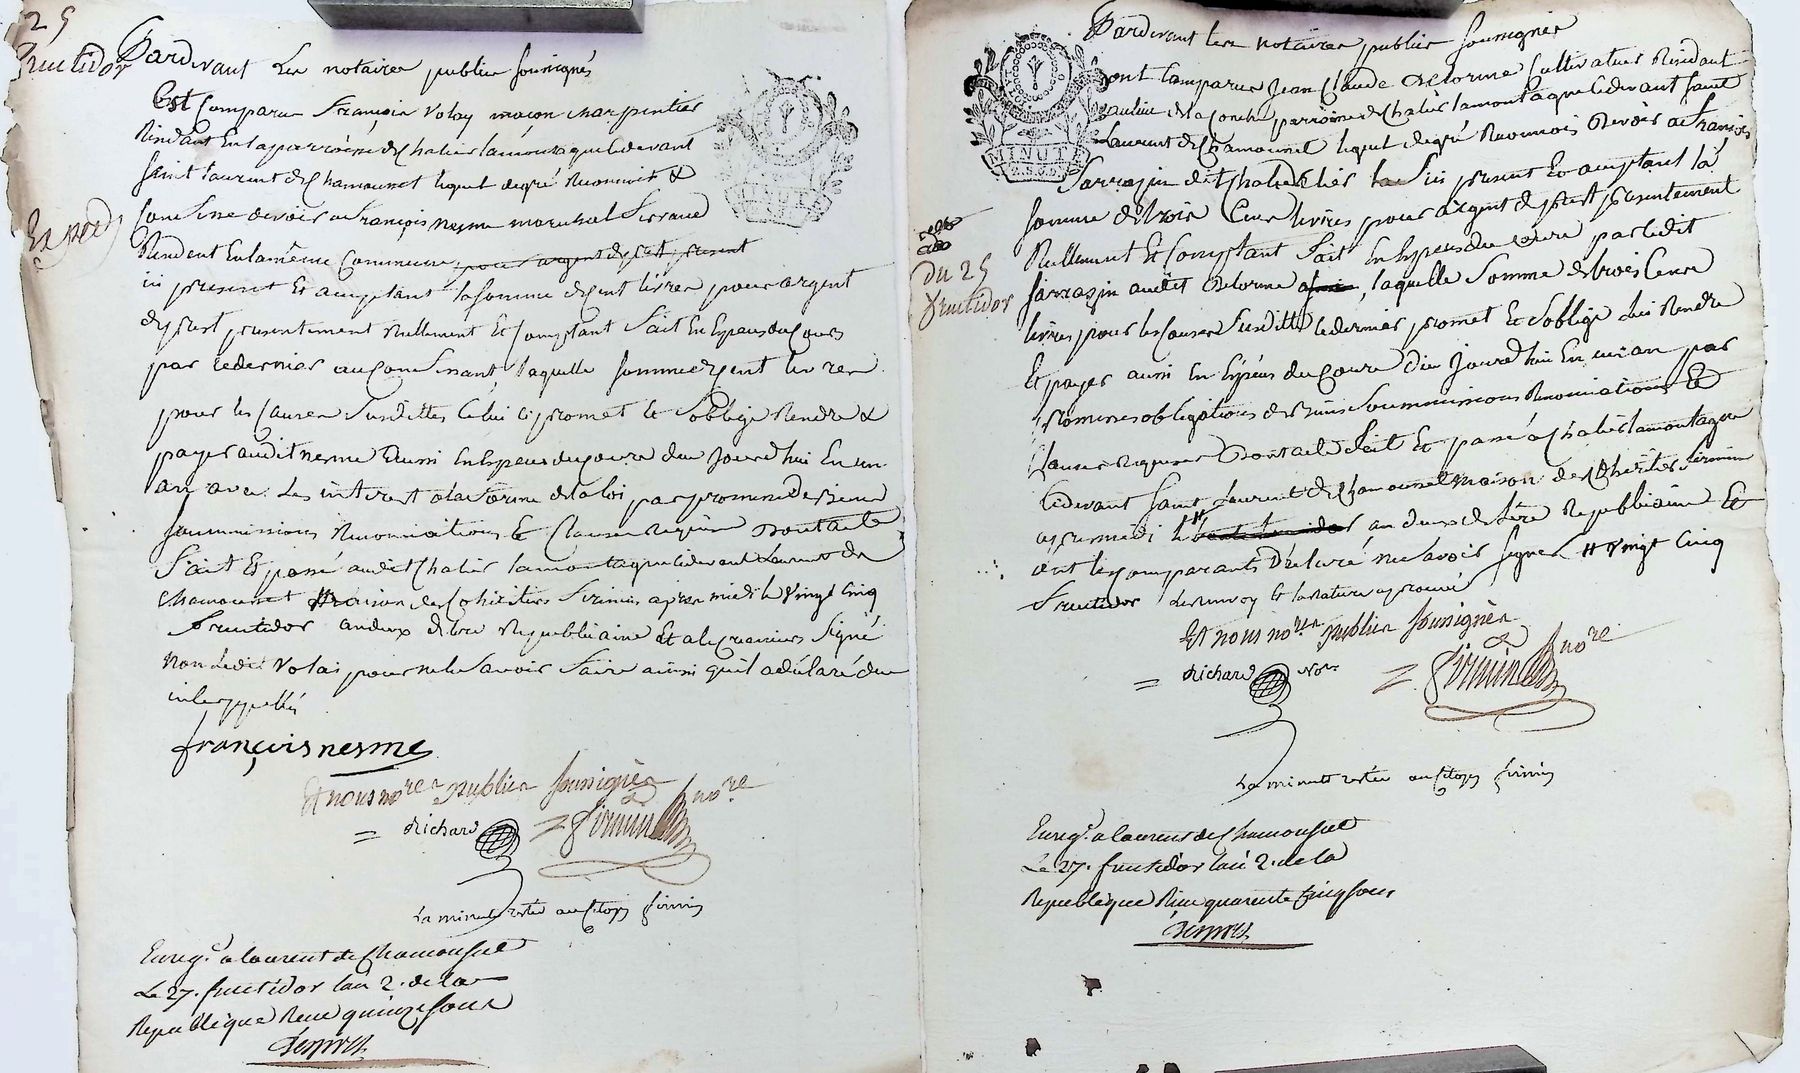 25
fructidor
Pardevant Les notaires publics soussignés
Est Comparu François Volay maçon charpentier
Résidant En la parroisse de Chalier la montagne cidevant
saint Laurent de Chamousset lequel de gré Reconnoit &
Confesse devoir a François nesme marechal ferrand
Résident En la même Commune, pour argent de prest present
ici present Et acceptant la somme de cent livres pour argent
de prest presentement Réellement Et Comptant fait En Especes du Cours
par ce dernier au Confessant, laquelle somme de cent livres
pour les Causes susdittes celui ci promet Et s'oblige Rendre &
payer audit nesme aussi En Especes du cours du jourd'hui En un
an avec les interest a la forme de la loi, par promesse de biens
soummissions Renonciations Et Clauses Requises Dont acte
fait Et passé audit Chalier la montagne cidevant Laurent de
Chamousset maison des Cohéritiers firmin après midi le vingt cinq
fructidor an deux de l'ère Républicaine Et a le creancier signé
non ledit Volai pour ne le savoir faire ainsi qu'il a déclaré de ce
interpellés
françois nesme
Et nous no.res publics soussignés
= Richard = firmin no.re
La minute restée au Citoyen firmin
Enreg.é a laurent de Chamousset
Le 27. fructidor l'an 2. de la
Republique Reçu quinze sous
Pardevant les notaires publics soussignés
MINUTE
ont Comparu Jean Claude Delorme Cultivateur Résidant
au lieu de la Conche parroisse de Chalier la montagne cidevant saint
Laurent de Chamousset lequel de gré Reconnois Devoir a François
Sarrazin dit ici present Et acceptant la
somme de trois Cens livres pour argent de prest presentement
du 25
fructidor
Réellement Et Comptant fait En Especes du cours par ledit
sarrazin audit Delorme, laquelle somme de trois Cens
livres pour les Causes susdittes ce dernier promet Et s'oblige lui Rendre
Et payer aussi En Especes du Cours du jourd'hui En un an par
promesses obligations de biens Soummissions Renonciations Et
Clauses Requises Dont acte fait Et passé a Chalier la montagne
cidevant saint Laurent de Chamousset maison des Cohéritiers firmin
après midi le # an deux de l'ère Républicaine Et
ont les comparants Déclaré ne savoir signer # vingt cinq
fructidor
Et nous no.res publics soussignés
= Richard No.re = firmin no.re
La minute restée au Citoyen firmin
Enreg.é a laurent de Chamousset
Le 27. fructidor l'an 2. de la
Republique Reçu quarente Cinq sous